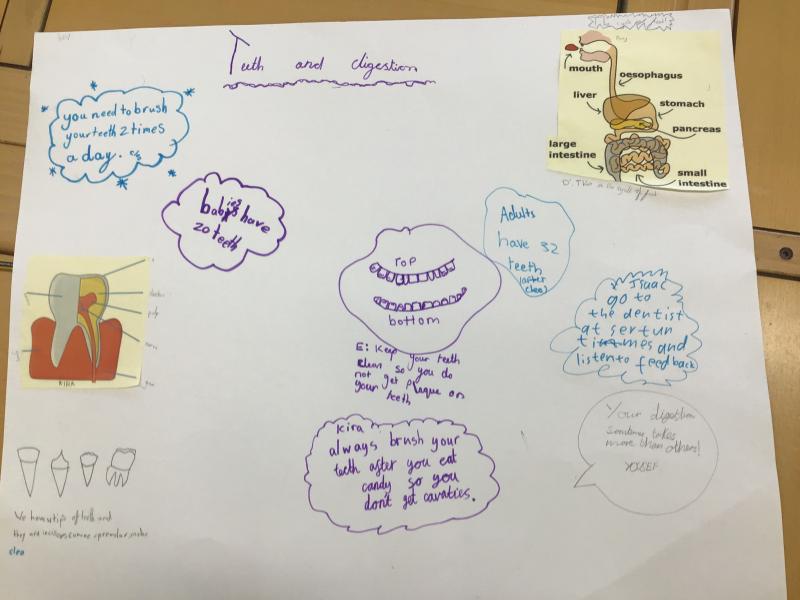 Teeth and digestion
you need to brush
your teeth 2 times
a day.
babies have
20 teeth
mouth
oesophagus
liver
stomach
pancreas
large
intestine
small
intestine
Adults
have 32
teeth
(after
cleo)
TOP
bottom
E: Keep your teeth
clean so you do
not get plaque on
your teeth
Isaac
go to
the dentist
at sertun
times and
listen to feedback
pulp
KIRA
kira
always brush your
teeth after you eat
candy so you
don't get cavaties.
Your digestion
sometimes takes
more than others!
YOUSEF
We have 4 tips of teeth and
they are incisors canine
cleo